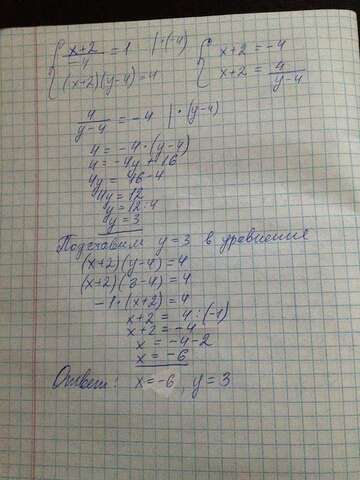 { (x+2)/-4 = 1 | ·(-4) { x+2 = -4
(x+2)(y-4) = 4 x+2 = 4/(y-4)
4/(y-4) = -4 | ·(y-4)
4 = -4·(y-4)
4 = -4y + 16
4y = 16-4
4y = 12
y = 12:4
y = 3
Подставим y = 3 в уравнение
(x+2)(y-4) = 4
(x+2)(3-4) = 4
-1·(x+2) = 4
x+2 = 4:(-1)
x+2 = -4
x = -4-2
x = -6
Ответ: x = -6, y = 3